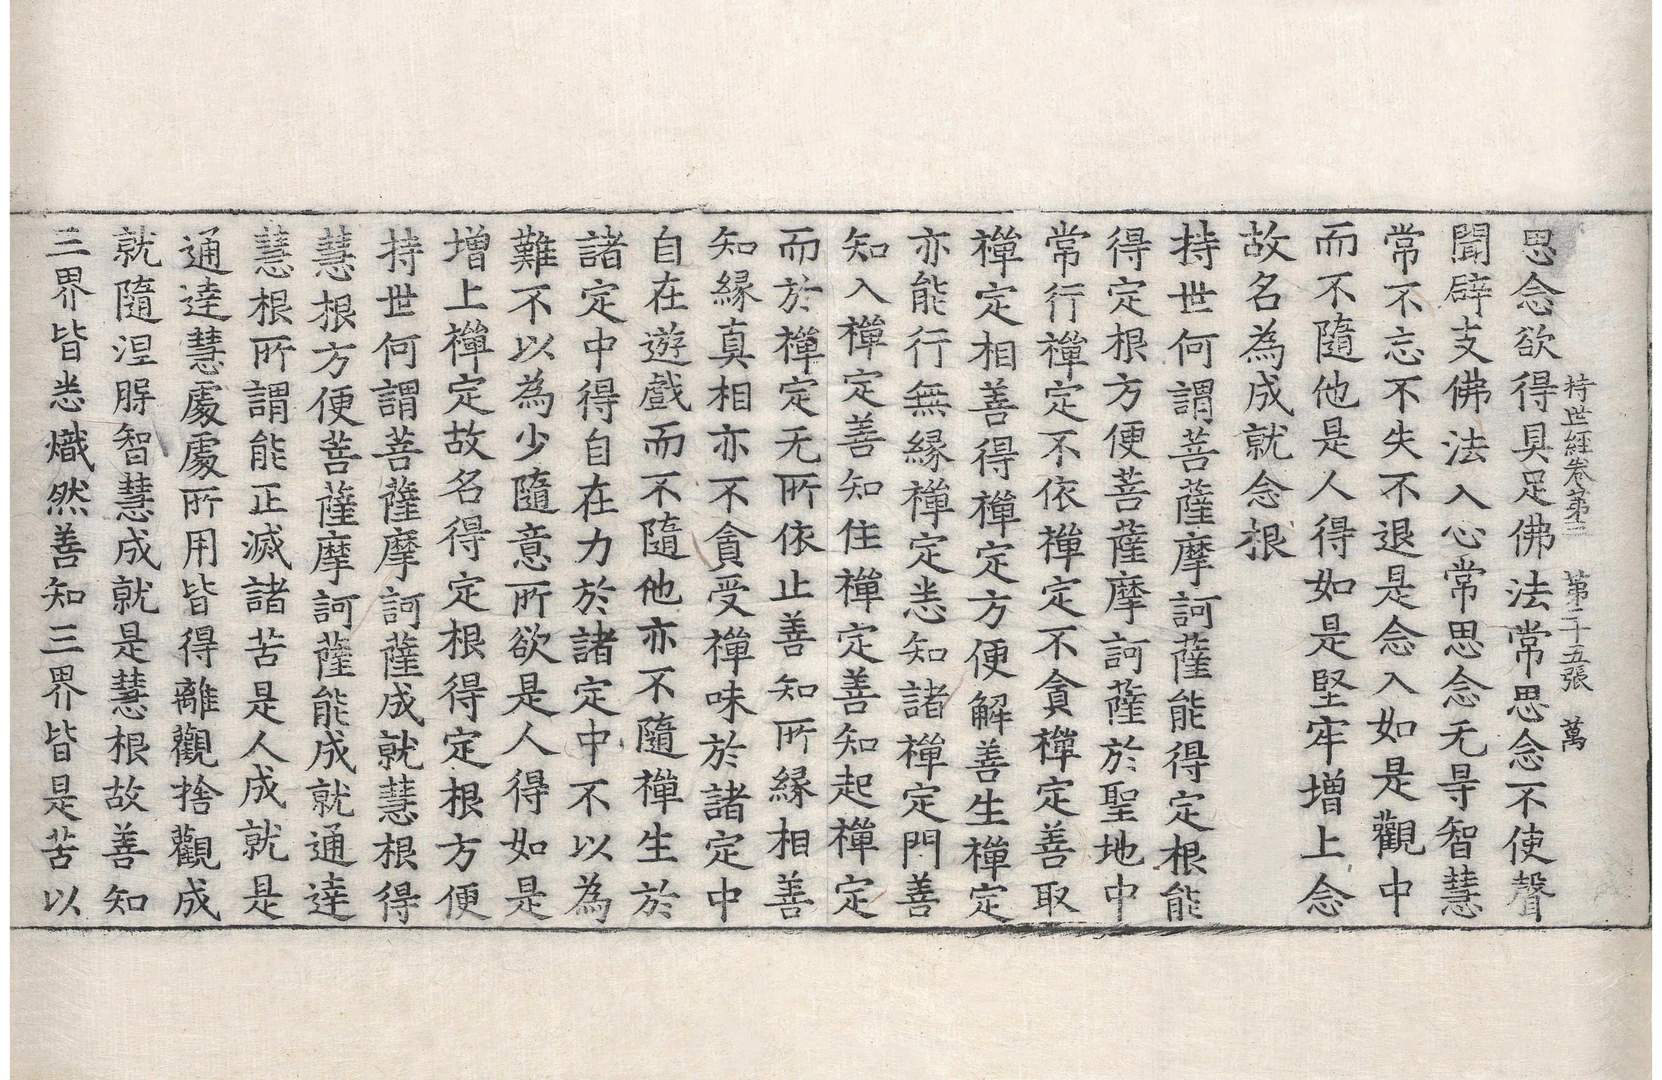 持世經卷第三　第二十五張　萬
思念欲得具足佛法常思念不使聲
聞辟支佛法入心常思念无㝵智慧
常不忘不失不退是念入如是觀中
而不隨他是人得如是堅牢增上念
故名為成就念根
持世何謂菩薩摩訶薩能得定根能
得定根方便菩薩摩訶薩於聖地中
常行禪定不依禪定不貪禪定善取
禪定相善得禪定方便解善生禪定
亦能行無緣禪定悉知諸禪定門善
知入禪定善知住禪定善知起禪定
而於禪定无所依止善知所緣相善
知緣真相亦不貪受禪味於諸定中
自在遊戲而不隨他亦不隨禪生於
諸定中得自在力於諸定中不以為
難不以為少隨意所欲是人得如是
增上禪定故名得定根得定根方便
持世何謂菩薩摩訶薩成就慧根得
慧根方便菩薩摩訶薩能成就通達
慧根所謂能正滅諸苦是人成就是
通達慧處處所用皆得離觀捨觀成
就隨涅脬智慧成就是慧根故善知
三界皆悉熾然善知三界皆是苦以